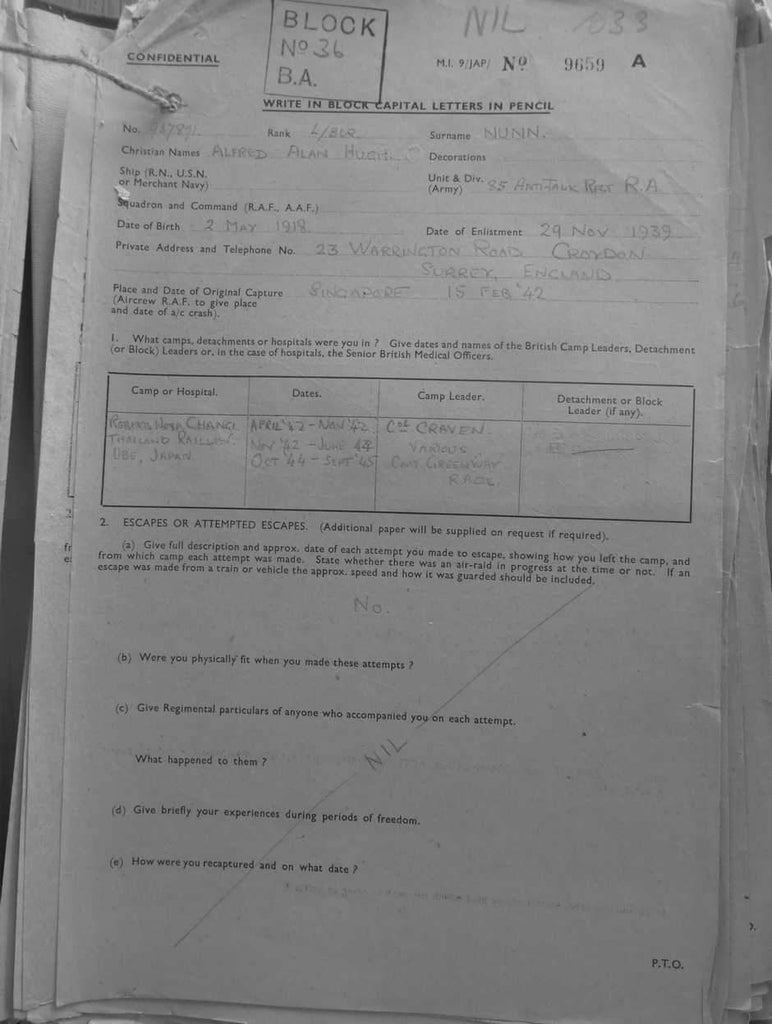 BLOCK
Nº 36
B.A.
NIL 033
CONFIDENTIAL
M.I. 9/JAP/ Nº 9659 A
WRITE IN BLOCK CAPITAL LETTERS IN PENCIL
No. Rank L/BDR Surname NUNN.
Christian Names ALFRED ALAN HUGH. Decorations
Ship (R.N., U.S.N. or Merchant Navy)
Unit & Div. (Army) 85 ANTI-TANK REGT R.A.
Squadron and Command (R.A.F., A.A.F.)
Date of Birth 2 MAY 1918 Date of Enlistment 29 NOV 1939
Private Address and Telephone No. 23 WARRINGTON ROAD CROYDON
SURREY, ENGLAND
Place and Date of Original Capture SINGAPORE 15 FEB '42
(Aircrew R.A.F. to give place
and date of a/c crash).
1. What camps, detachments or hospitals were you in ? Give dates and names of the British Camp Leaders, Detachment
(or Block) Leaders or, in the case of hospitals, the Senior British Medical Officers.
Camp or Hospital. Dates. Camp Leader. Detachment or Block
Leader (if any).
ROBERTS HOSP. CHANGI APRIL '42 - NOV '42 Col CRAVEN
THAILAND RAILWAY. NOV '42 - JUNE 44 VARIOUS
UBE, JAPAN OCT '44 - SEPT '45 CAPT. GREENWAY
2. ESCAPES OR ATTEMPTED ESCAPES. (Additional paper will be supplied on request if required).
(a) Give full description and approx. date of each attempt you made to escape, showing how you left the camp, and
from which camp each attempt was made. State whether there was an air-raid in progress at the time or not. If an
escape was made from a train or vehicle the approx. speed and how it was guarded should be included.
No.
(b) Were you physically fit when you made these attempts ?
(c) Give Regimental particulars of anyone who accompanied you on each attempt.
NIL
What happened to them ?
(d) Give briefly your experiences during periods of freedom.
(e) How were you recaptured and on what date ?
P.T.O.